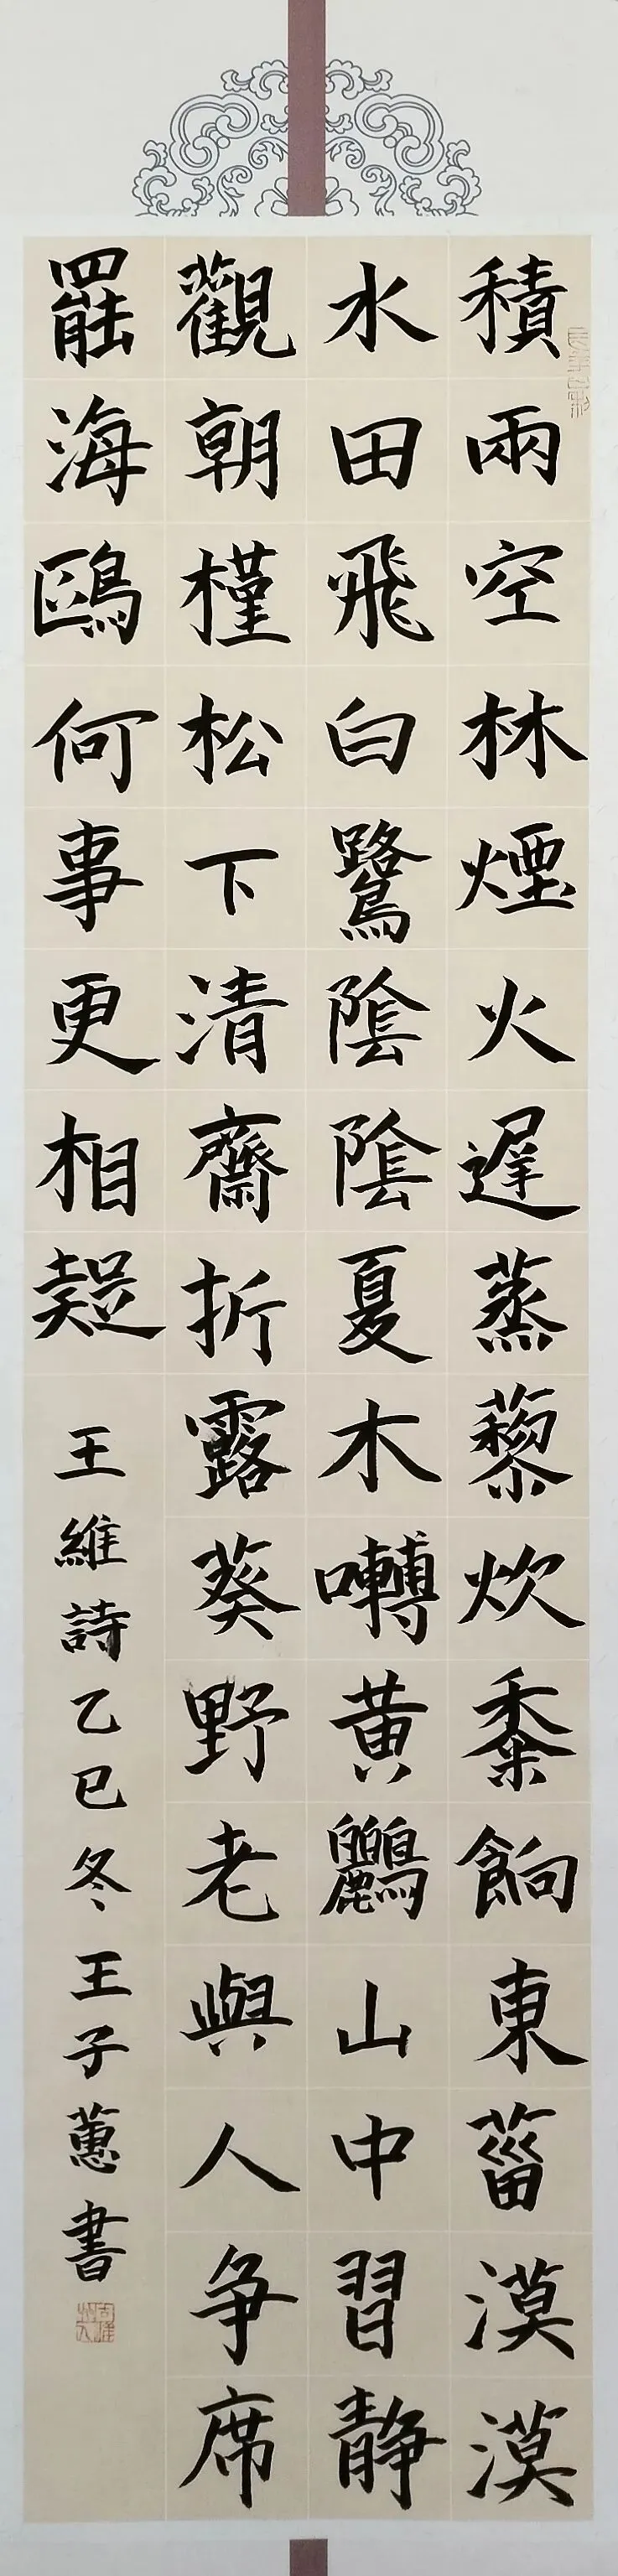 積雨空林煙火遲蒸藜炊黍餉東菑漠漠
水田飛白鷺陰陰夏木囀黃鸝山中習靜
觀朝槿松下清齋折露葵野老與人爭席
罷海鷗何事更相疑
王維詩乙巳冬王子蕙書